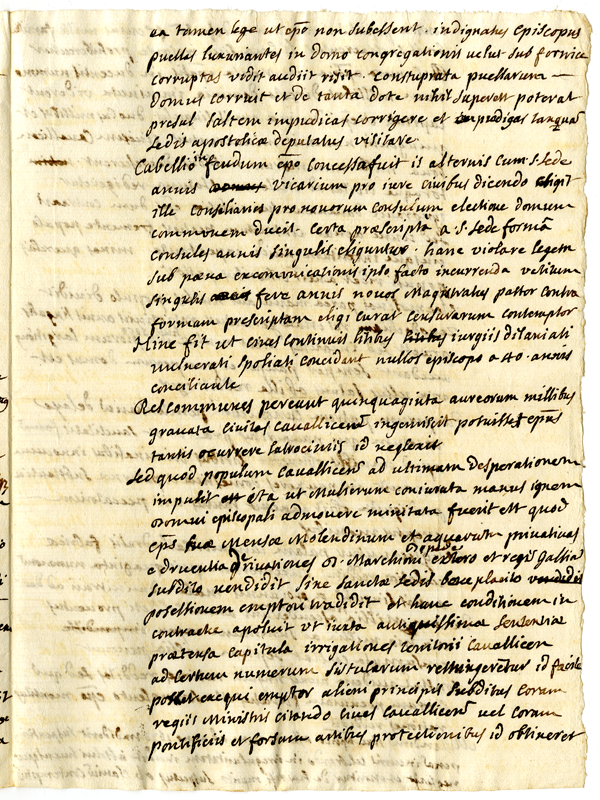 ea tamen lege ut epo non subessent. indignatus episcopus
puellas luxuriantes in domo congregationis velut sub fornice
corruptas vidit audiit risit. constuprata puellarum
domus corruit et de tanta dote nihil superest poterat
presul saltem impudicas corrigere et impudigas tanquã
sedis apostolicæ deputatus visitare
feudum epo concessa fuit is alternis cum S. sede
annis vicarium pro iure civibus dicendo eligit
ille consiliarios pro novorum consulum electione domum
communem ducit. certa præscripta a S. sede formã
consules annis singulis eliguntur. hanc violare legem
sub pæna excomunicationis ipso facto incurrenda vetitum
singulis fere annis novos Magistratus pastor contra
formam prescriptam eligi curat censurarum contemptor
Hinc fit ut cives continuis litibus iurgiis dilaniati
vulnerati spoliati concidant nullos episcopo a 40. annis
conciliante
Res communes pereunt quinquaginta aureorum millibus
gravata civitas cavallicen ingemiscit potuisset epus
tantis ocurrere latrociniis id neglexit
Sed quod populum cavallicen ad ultimam desperationem
impulit ita ut Mulierum coniurata manus ignem
domui episcopali admovere minitata fuerit est quod
eps suæ Mensæ Molendinum et aquarum privativas
e druentia derivationes D. Marchioni extero et regis Galliæ
subdito vendidit sine sanctæ sedis beneplacito
possessionem emptori tradidit et hanc conditionem in
contractu aposuit ut iuxta antiquissimæ sententiæ
prætensa capitula irrigationes territorii cavallicen
ad certum numerum fistularum restringeretur id facile
posset exequi emptor alieni principis subditus coram
regiis Ministris citando cives cavallicen vel coram
pontificiis et forsam artibus protectionibus id obtineret